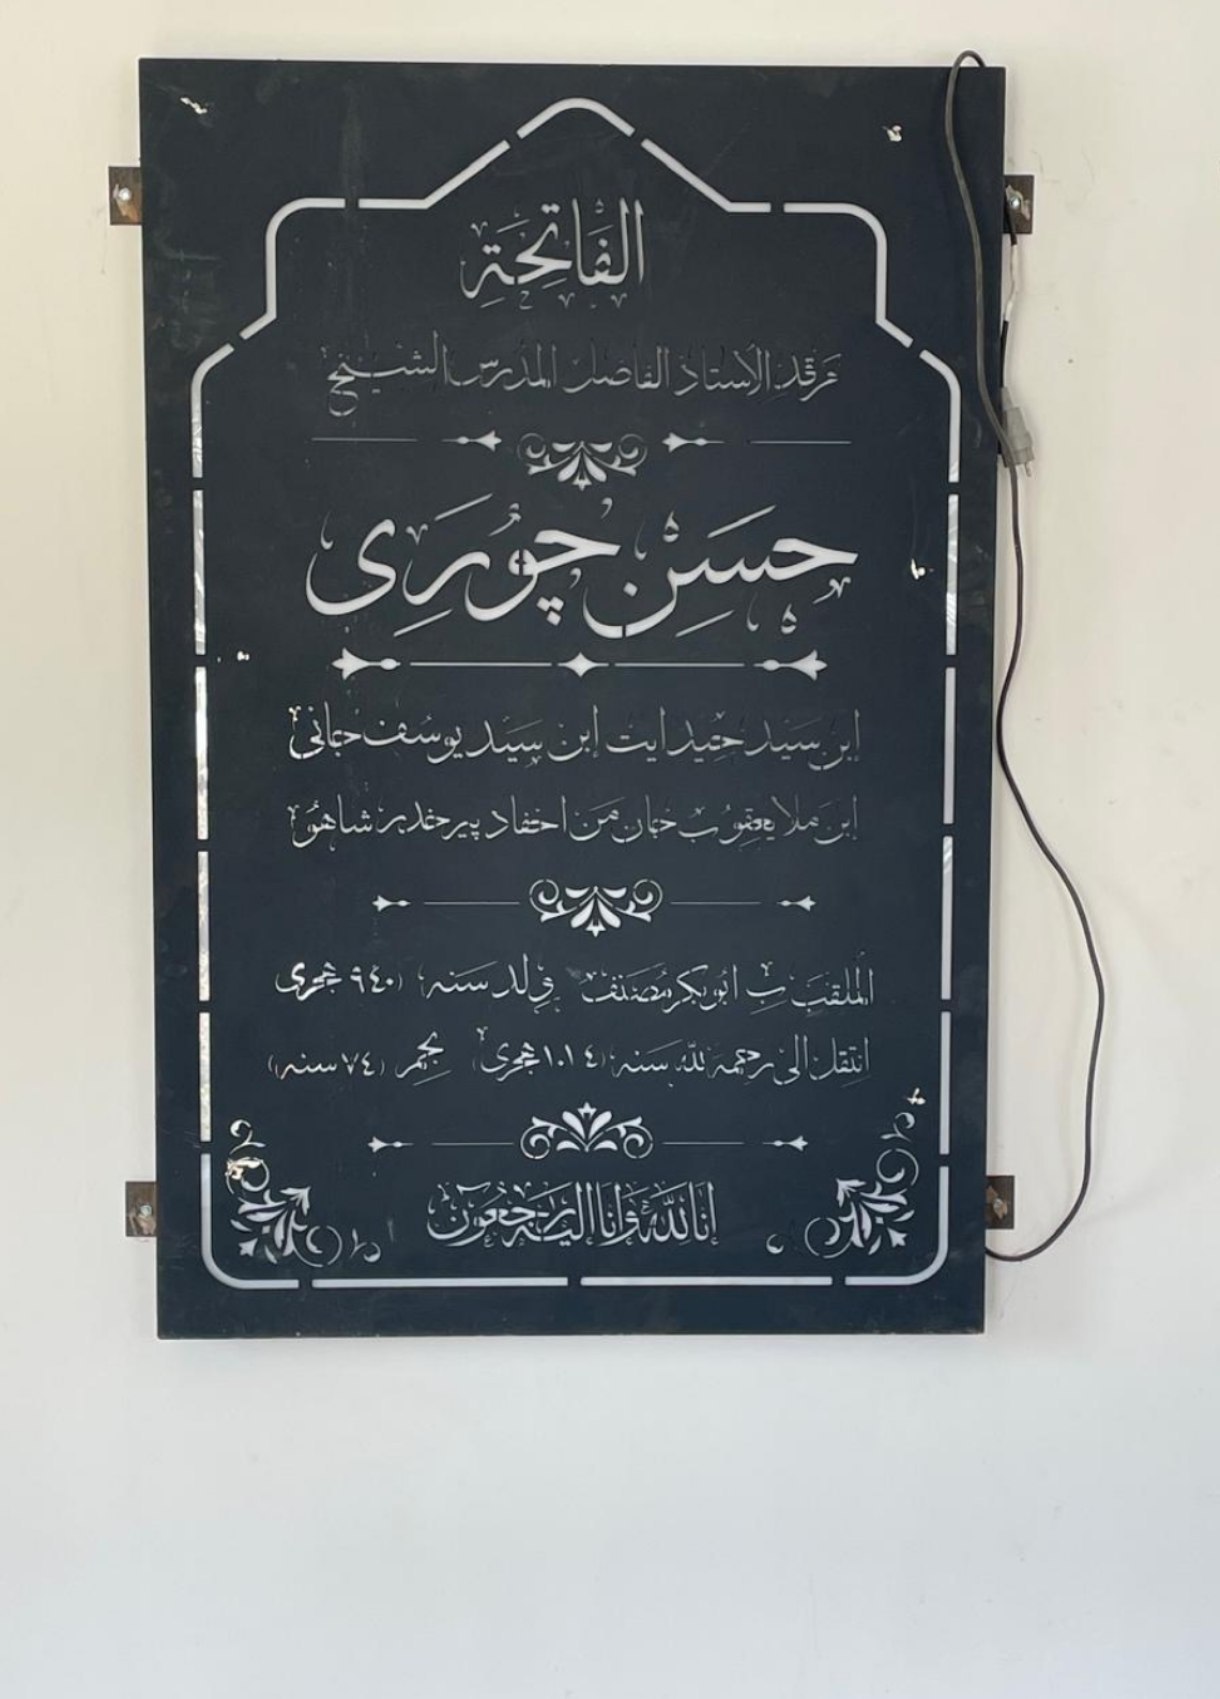 الفَاتِحَةِ
مرقد الاستاذ الفاضل المدرس الشيخ
حسن چوری
ابن سید حیدایت ابن سید یوسف جانی
ابن ملا یعقوب جان من احفاد پیر خدر شاهو
الملقب ب ابوبکر مصنف ولد سنه (٩٤٠ هجری
انتقل الی رحمه لله سنه (١٠١٤ هجری) بعمر (٧٤ سنه)
انا لله وانا الیه راجعون